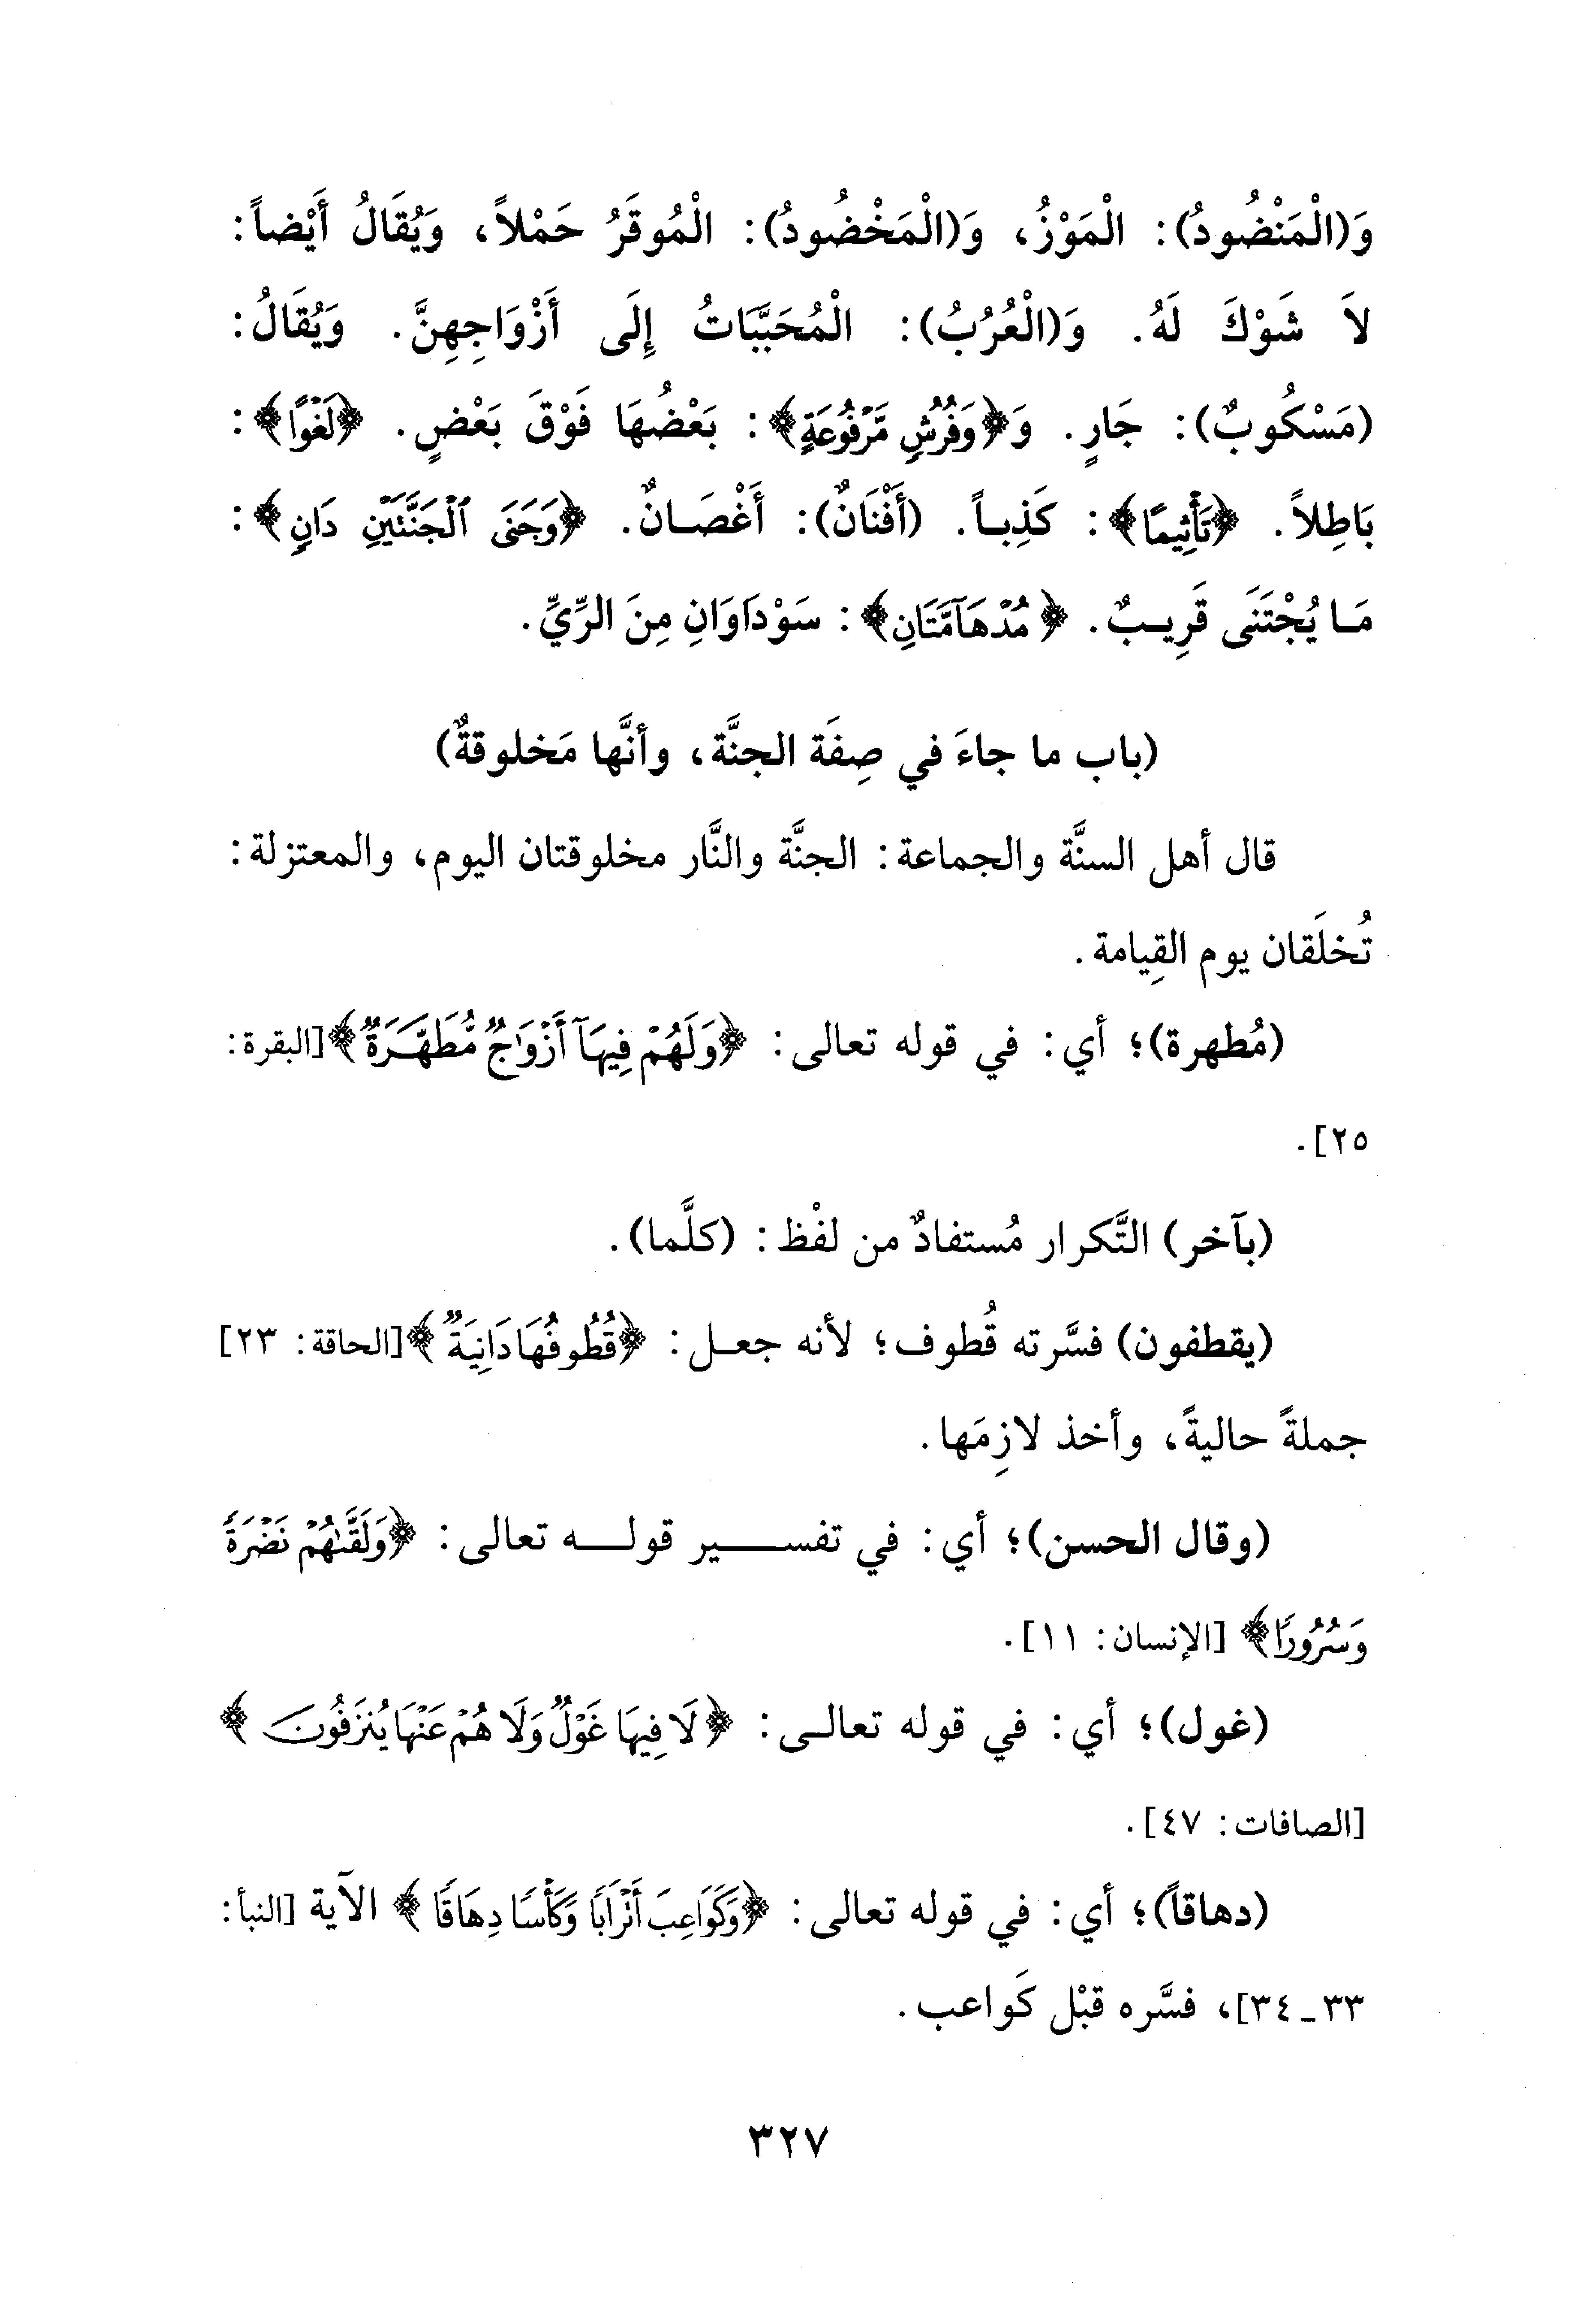 وَ(الْمَنْضُودُ): الْمَوْزُ، وَ(الْمَخْضُودُ): الْمُوقَرُ حَمْلاً، وَيُقَالُ أَيْضاً:
لاَ شَوْكَ لَهُ. وَ(الْعُرُبُ): الْمُحَبَّبَاتُ إِلَى أَزْوَاجِهِنَّ. وَيُقَالُ:
(مَسْكُوبٌ): جَارٍ. وَ﴿وَفُرُشٍ مَّرْفُوعَةٍ﴾: بَعْضُهَا فَوْقَ بَعْضٍ. ﴿لَغْوًا﴾:
بَاطِلاً. ﴿تَأْثِيمًا﴾: كَذِباً. (أَفْنَانٌ): أَغْصَانٌ. ﴿وَجَنَى ٱلْجَنَّتَيْنِ دَانٍ﴾:
مَا يُجْتَنَى قَرِيبٌ. ﴿مُدْهَآمَّتَانِ﴾: سَوْدَاوَانِ مِنَ الرِّيِّ.
(باب ما جاءَ في صِفَة الجنَّة، وأنَّها مَخلوقةٌ)
قال أهل السنَّة والجماعة: الجنَّة والنَّار مخلوقتان اليوم، والمعتزلة:
تُخلَقان يوم القِيامة.
(مُطهرة)؛ أي: في قوله تعالى: ﴿وَلَهُمْ فِيهَآ أَزْوَٰجٌ مُّطَهَّرَةٌ﴾[البقرة:
٢٥].
(بآخر) التَّكرار مُستفادٌ من لفْظ: (كلَّما).
(يقطفون) فسَّرته قُطوف؛ لأنه جعل: ﴿قُطُوفُهَا دَانِيَةٌ﴾[الحاقة: ٢٣]
جملةً حاليةً، وأخذ لازِمَها.
(وقال الحسن)؛ أي: في تفسير قوله تعالى: ﴿وَلَقَّىٰهُمْ نَضْرَةً
وَسُرُورًا﴾ [الإنسان: ١١].
(غول)؛ أي: في قوله تعالى: ﴿لَا فِيهَا غَوْلٌ وَلَا هُمْ عَنْهَا يُنزَفُونَ﴾
[الصافات: ٤٧].
(دهاقاً)؛ أي: في قوله تعالى: ﴿وَكَوَاعِبَ أَتْرَابًا وَكَأْسًا دِهَاقًا﴾ الآية [النبأ:
٣٣ـ٣٤]، فسَّره قبْل كَواعب.
٣٢٧